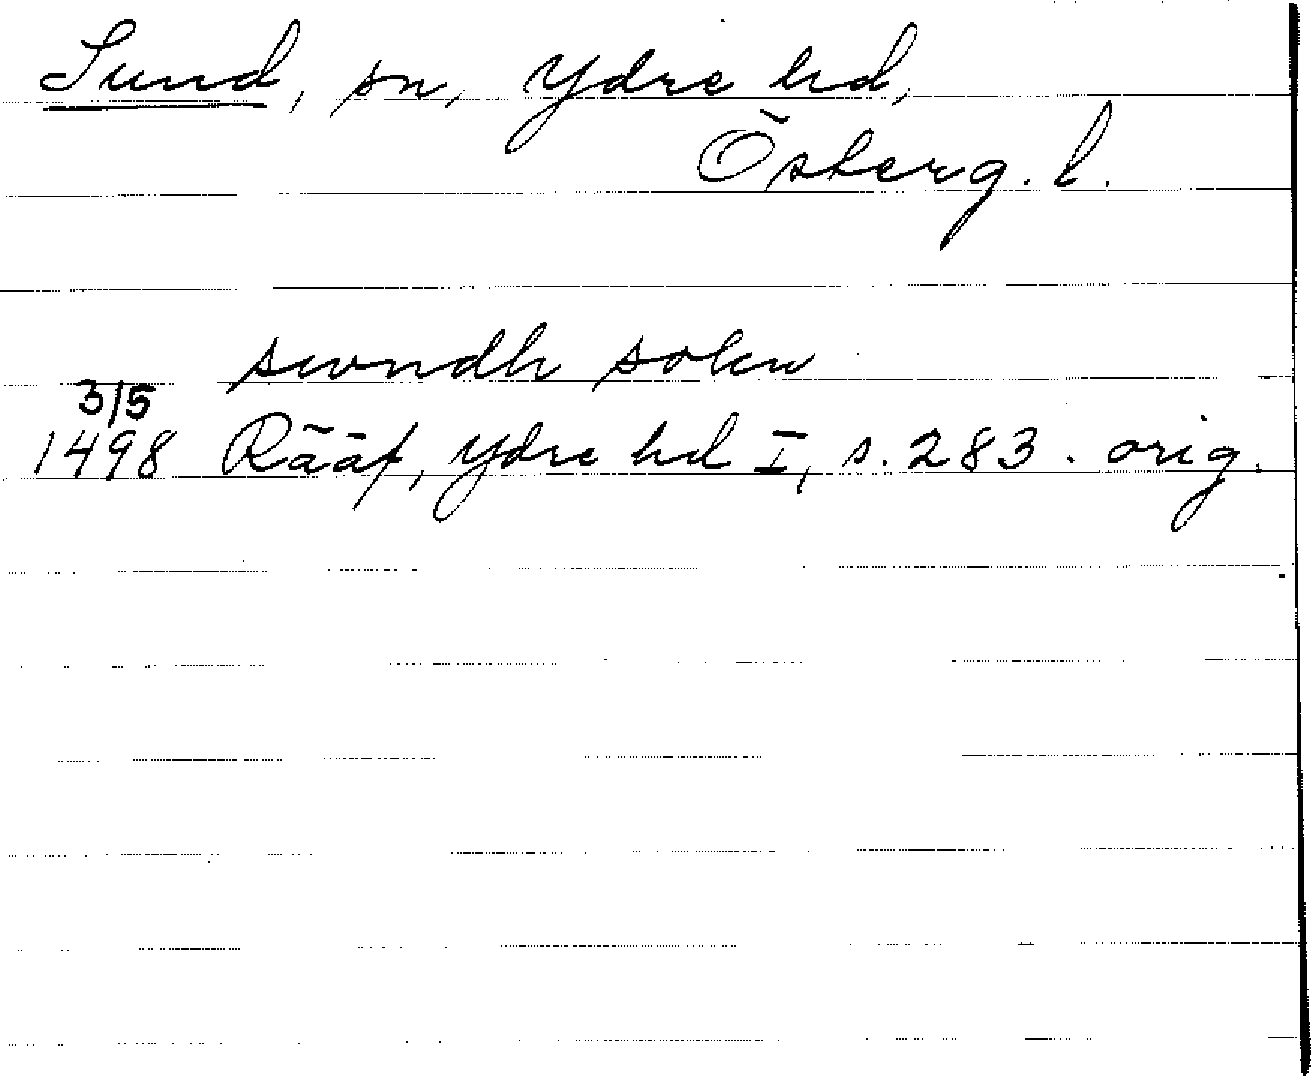 Sund, sn, Ydre hd,
Österg. l.
swndh sokn
3/5
1498 Rääf, Ydre hd I, s. 283. orig.